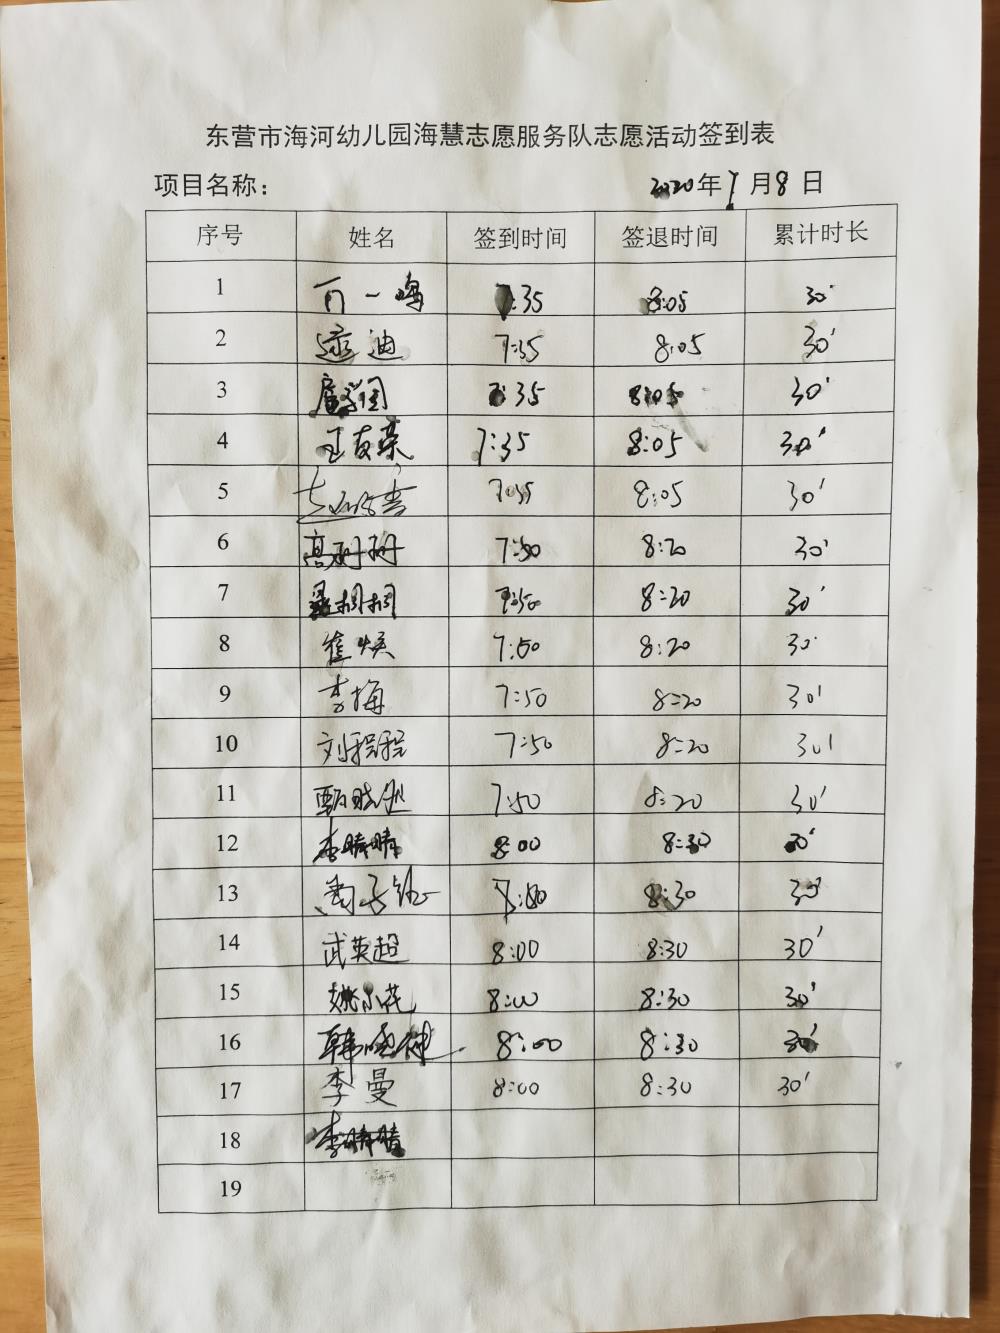 东营市海河幼儿园海慧志愿服务队志愿活动签到表
项目名称: 2020年1月8日
序号 姓名 签到时间 签退时间 累计时长
1 一鸣 7:35 8:05 30'
2 迪 7:35 8:05 30'
3 7:35 8:05 30'
4 王友荣 7:35 8:05 30'
5 7:35 8:05 30'
6 高珊珊 7:50 8:20 30'
7 桐桐 7:50 8:20 30'
8 崔焕 7:50 8:20 30'
9 李梅 7:50 8:20 30'
10 刘程程 7:50 8:20 30'
11 甄晓 7:50 8:20 30'
12 李晴晴 8:00 8:30 30'
13 子 8:00 8:30 30'
14 武英超 8:00 8:30 30'
15 姚小花 8:00 8:30 30'
16 韩 8:00 8:30 30'
17 李曼 8:00 8:30 30'
18 李晴晴
19